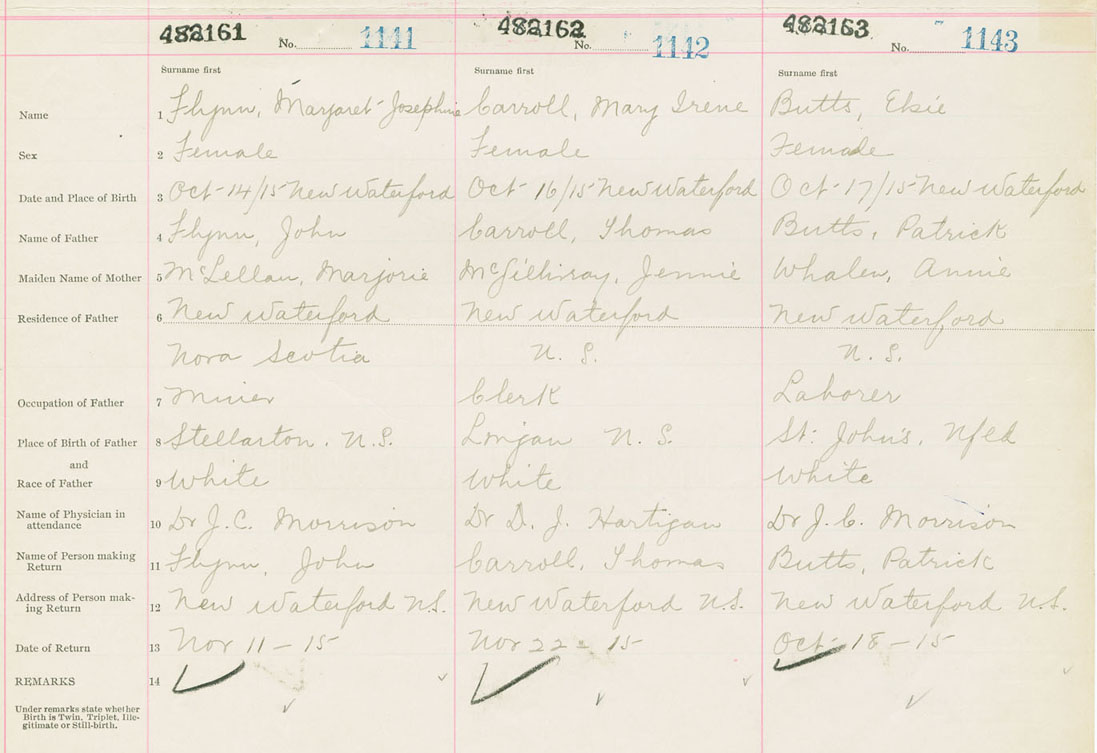 482161 482162 482163
No. 1141 No. 1142 No. 1143
Surname first Surname first Surname first
Name 1 Flynn, Margaret Josephine Carroll, Mary Irene Butts, Elsie
Sex 2 Female Female Female
Date and Place of Birth 3 Oct 14/15 New Waterford Oct 16/15 New Waterford Oct 17/15 New Waterford
Name of Father 4 Flynn, John Carroll, Thomas Butts, Patrick
Maiden Name of Mother 5 McLellan, Marjorie McGillivray, Jennie Whalen, Annie
Residence of Father 6 New Waterford New Waterford New Waterford
Nova Scotia N. S. N. S.
Occupation of Father 7 Miner Clerk Laborer
Place of Birth of Father 8 Stellarton, N.S. Lingan N. S. St. John's, Nfld
and
Race of Father 9 White White White
Name of Physician in
attendance 10 Dr J. C. Morrison Dr D. J. Hartigan Dr J. C. Morrison
Name of Person making
Return 11 Flynn, John Carroll, Thomas Butts, Patrick
Address of Person mak-
ing Return 12 New Waterford N.S. New Waterford N.S. New Waterford N.S.
Date of Return 13 Nov 11 - 15 Nov 22 - 15 Oct 18 - 15
REMARKS 14
Under remarks state whether
Birth is Twin, Triplet, Ille-
gitimate or Still-birth.